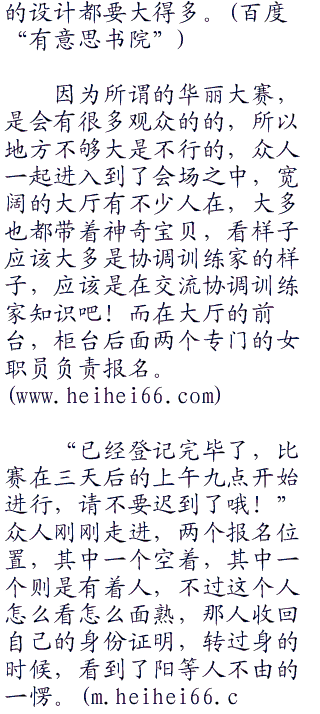 的设计都要大得多。(百度
“有意思书院”)
因为所谓的华丽大赛，
是会有很多观众的的，所以
地方不够大是不行的，众人
一起进入到了会场之中，宽
阔的大厅有不少人在，大多
也都带着神奇宝贝，看样子
应该大多是协调训练家的样
子，应该是在交流协调训练
家知识吧！而在大厅的前
台，柜台后面两个专门的女
职员负责报名。
(www.heihei66.com)
“已经登记完毕了，比
赛在三天后的上午九点开始
进行，请不要迟到了哦！”
众人刚刚走进，两个报名位
置，其中一个空着，其中一
个则是有着人，不过这个人
怎么看怎么面熟，那人收回
自己的身份证明，转过身的
时候，看到了阳等人不由的
一愣。(m.heihei66.c